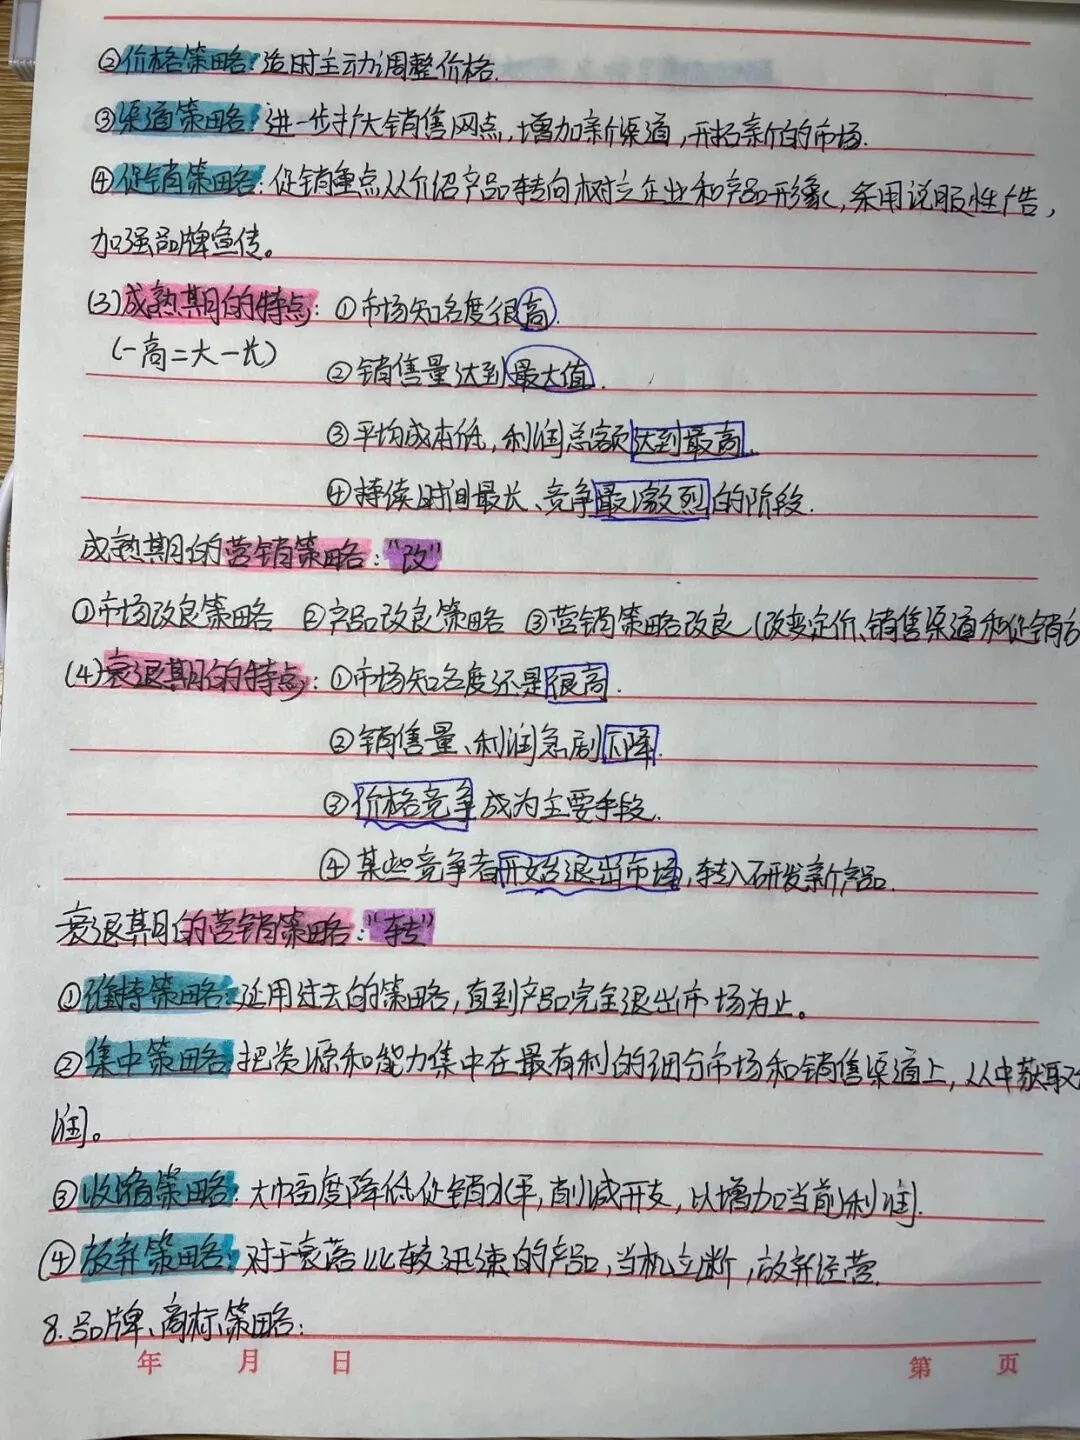 ②价格策略：适时主动调整价格.
③渠道策略：进一步扩大销售网点，增加新渠道，开拓新的市场.
④促销策略：促销重点从介绍产品转向树立企业和产品形象，采用说服性广告，
加强品牌宣传。
(3)成熟期的特点：①市场知名度很高.
(一高二大一长)
②销售量达到最大值.
③平均成本低，利润总额达到最高.
④持续时间最长、竞争最激烈的阶段.
成熟期的营销策略："改"
①市场改良策略 ②产品改良策略 ③营销策略改良(改变定价、销售渠道和促销方
(4)衰退期的特点：①市场知名度还是很高.
②销售量、利润急剧下降.
③价格竞争成为主要手段.
④某些竞争者开始退出市场，转入研发新产品.
衰退期的营销策略："转"
①维持策略：延用过去的策略，直到产品完全退出市场为止。
②集中策略：把资源和能力集中在最有利的细分市场和销售渠道上，从中获取
润。
③收缩策略：大幅度降低促销水平，削减开支，以增加当前利润.
④放弃策略：对于衰落比较迅速的产品，当机立断，放弃经营.
8.品牌、商标策略：
年 月 日 第 页